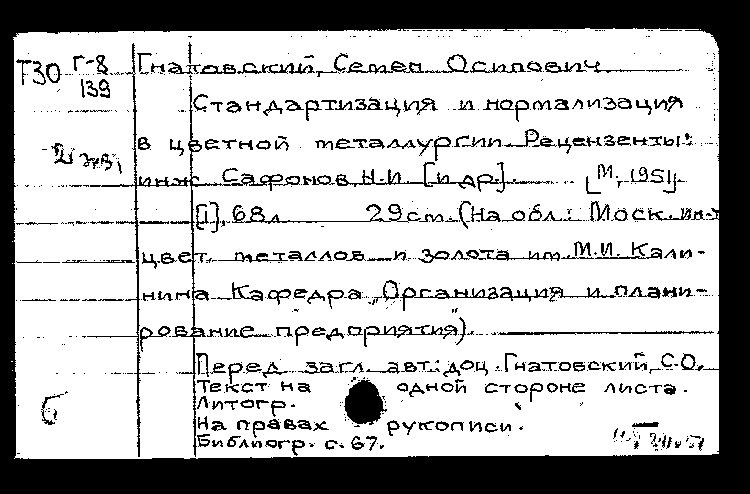 Т30 Г-8
139
2 экз,
Гнатовский, Семен Осипович.
Стандартизация и нормализация
в цветной металлургии. Рецензенты:
инж. Сафонов, Н.И. [и др.]. [М., 1951].
[1], 68 л 29 см. (На обл.: Моск. ин-т
цвет. металлов и золота им. М.И. Кали-
нина Кафедра „Организация и плани-
рование предприятия").
Перед загл. авт.: доц. Гнатовский, С.О.
Текст на одной стороне листа.
Литогр.
На правах рукописи.
Библиогр. с. 67.
б